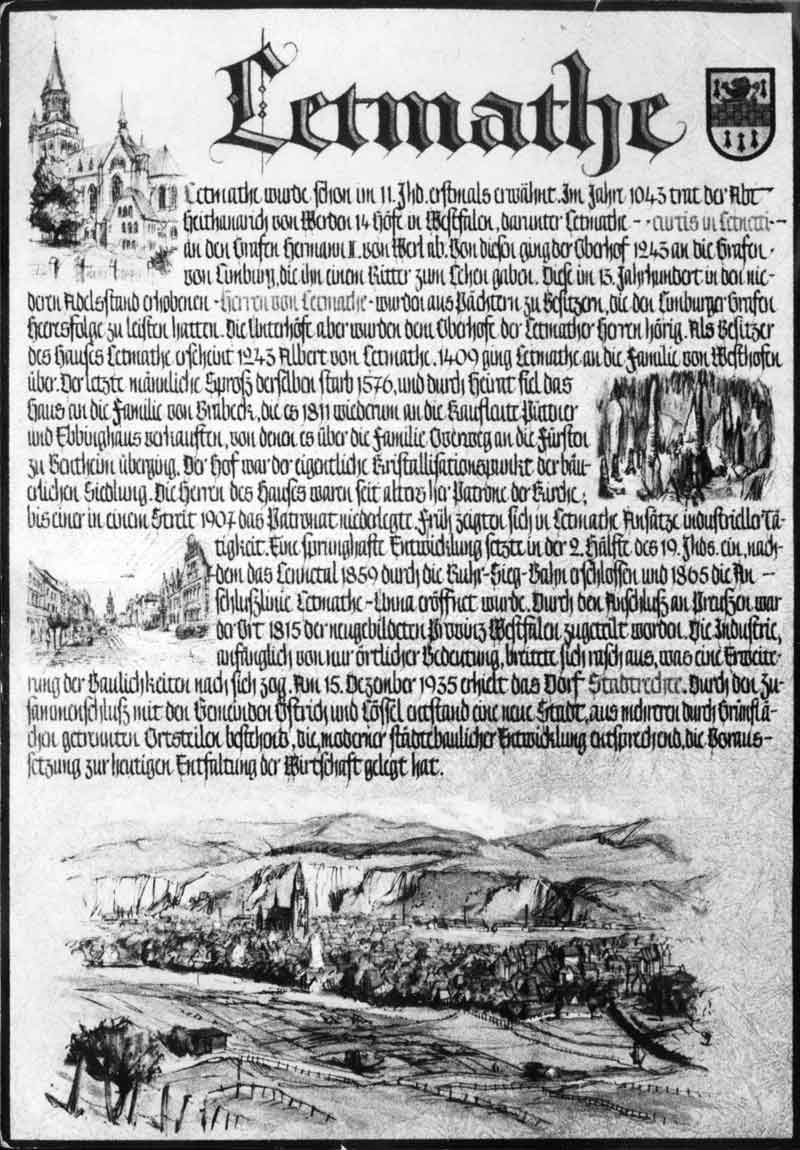 Letmathe
Letmathe wurde schon im 11. Jhd. erstmals erwähnt. Im Jahr 1043 trat der Abt
Heithanarich von Werden 14 Höfe in Westfalen, darunter Letmathe - curtis in Letmetti -
an den Grafen Hermann II. von Werl ab. Von diesen ging der Oberhof 1243 an die Grafen
von Limburg, die ihn einem Ritter zum Lehen gaben. Diese im 13. Jahrhundert in den nie-
deren Adelsstand erhobenen - Herren von Letmathe - wurden aus Pächtern zu Besitzern, die den Limburger Grafen
Heeresfolge zu leisten hatten. Die Unterhöfe aber wurden dem Oberhofe der Letmather Herren hörig. Als Besitzer
des Hauses Letmathe erscheint 1243 Albert von Letmathe. 1409 ging Letmathe an die Familie von Westhofen
über. Der letzte männliche Sproß derselben starb 1576, und durch Heirat fiel das
Haus an die Familie von Brabeck, die es 1811 wiederum an die Kaufleute Püttner
und Ebbinghaus verkauften, von denen es über die Familie Overweg an die Fürsten
zu Bentheim überging. Der Hof war der eigentliche Kristallisationspunkt der bäu-
erlichen Siedlung. Die Herren des Hauses waren seit alters her Patrone der Kirche,
bis einer in einem Streit 1907 das Patronat niederlegte. Früh zeigten sich in Letmathe Ansätze industrieller Tä-
tigkeit. Eine sprunghafte Entwicklung setzte in der 2. Hälfte des 19. Jhds. ein, nach-
dem das Lennetal 1859 durch die Ruhr-Sieg-Bahn erschlossen und 1865 die An-
schlußlinie Letmathe-Unna eröffnet wurde. Durch den Anschluß an Preußen war
der Ort 1815 der neugebildeten Provinz Westfalen zugeteilt worden. Die Industrie,
anfänglich von nur örtlicher Bedeutung, breitete sich rasch aus, was eine Erweite-
rung der Baulichkeiten nach sich zog. Am 15. Dezember 1935 erhielt das Dorf Stadtrechte. Durch den Zu-
sammenschluß mit den Gemeinden Östrich und Lössel entstand eine neue Stadt, aus mehreren durch Grünflä-
chen getrennten Ortsteilen bestehend, die, moderner städtebaulicher Entwicklung entsprechend, die Voraus-
setzung zur heutigen Entfaltung der Wirtschaft gelegt hat.